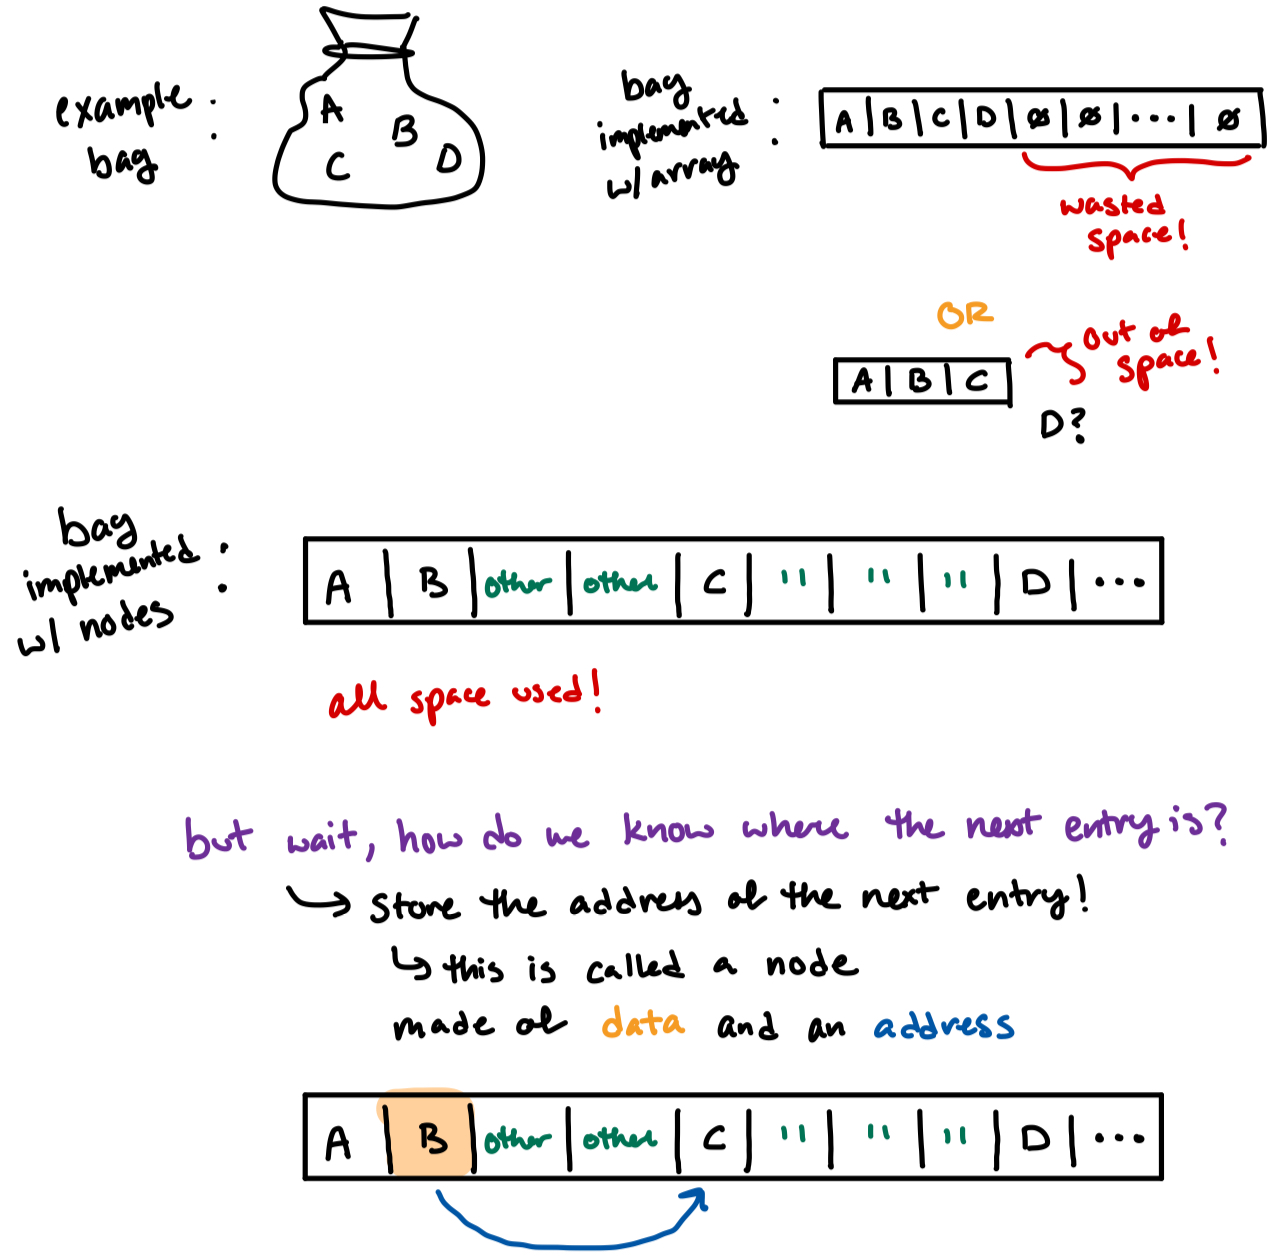 example :
bag
A
B
C
D
bag
implemented :
w/ array
A | B | C | D | Ø | Ø | ... | Ø
wasted
space!
OR
A | B | C
out of
space!
D?
bag
implemented :
w/ nodes
A | B | other | other | C | " | " | " | D | ...
all space used!
but wait, how do we know where the next entry is?
↳ store the address of the next entry!
↳ this is called a node
made of data and an address
A | B | other | other | C | " | " | " | D | ...